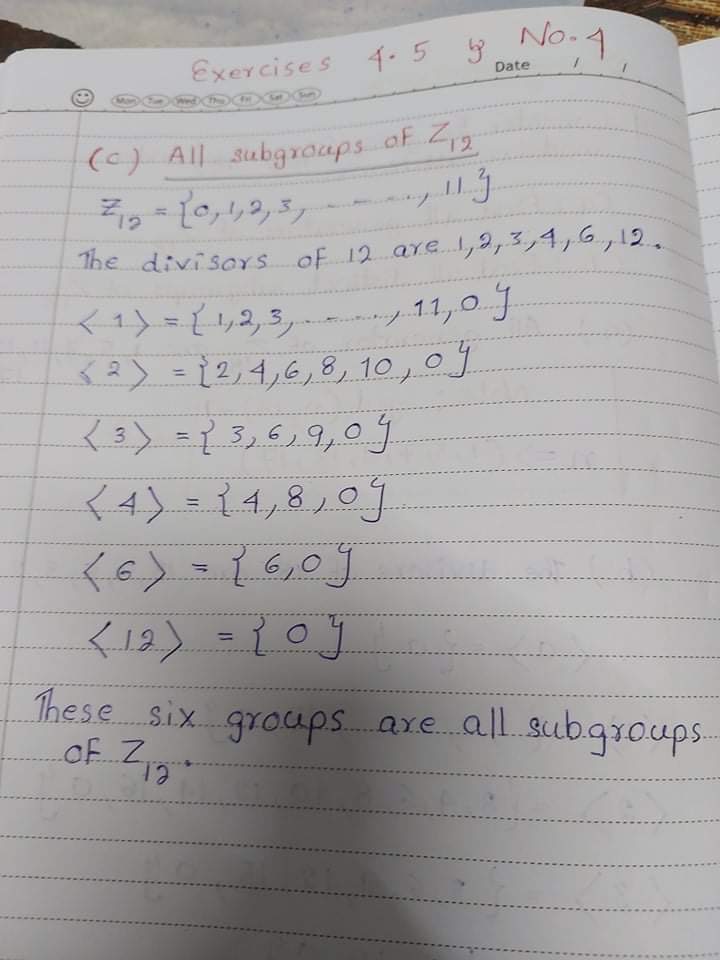 Exercises 4.5 No.4
Date / /
Mon Tue Wed Thu Fri Sat Sun
(c) All subgroups of Z₁₂
Z₁₂ = {0,1,2,3, - - - ..., 11}
The divisors of 12 are 1,2,3,4,6,12.
⟨1⟩ = {1,2,3, - - - ..., 11,0}
⟨2⟩ = {2,4,6,8,10,0}
⟨3⟩ = {3,6,9,0}
⟨4⟩ = {4,8,0}
⟨6⟩ = {6,0}
⟨12⟩ = {0}
These six groups are all subgroups
of Z₁₂.